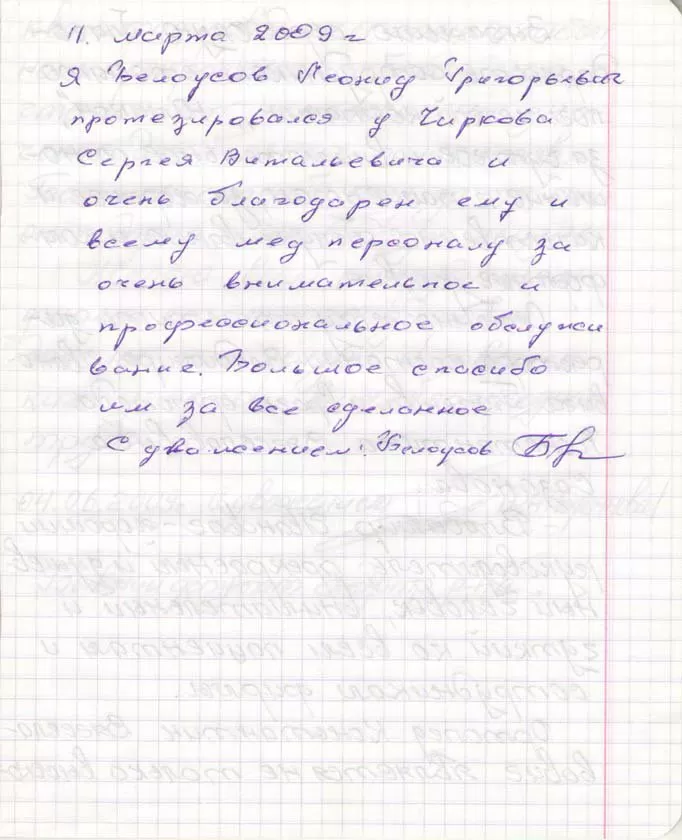 11. марта 2009 г
Я Белоусов Леонид Григорьевич
протезировался у Чиркова
Сергея Витальевича и
очень благодарен ему и
всему мед персоналу за
очень внимательное и
профессиональное обслужи
вание. Большое спасибо
им за все сделанное
С уважением: Белоусов